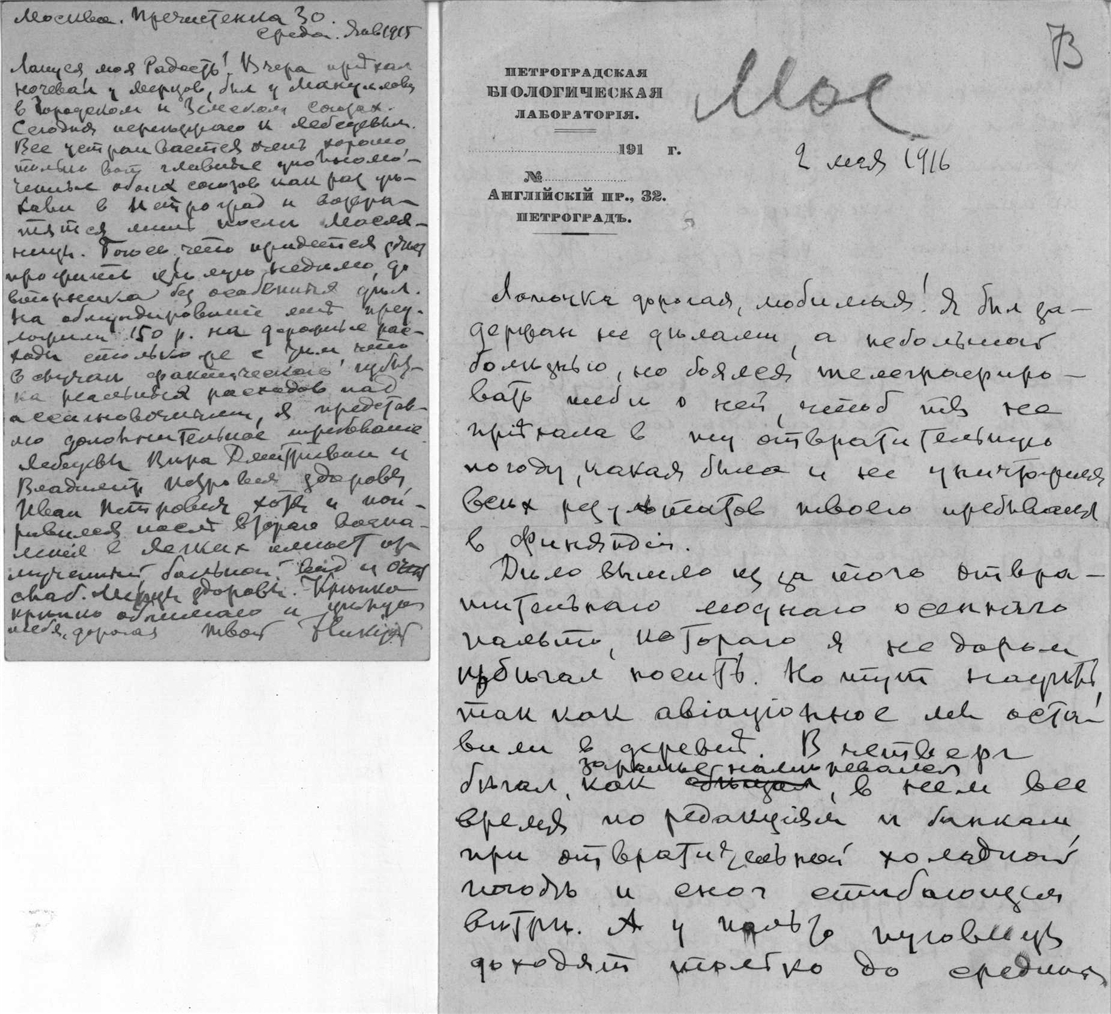 Москва. Пречистенка 30.
среда. Янв 1915
Лапуся моя Радость! Вчера приѣхал
ночевал у Мерцов, был у Мануилова
в Городском и Земском союзах.
Сегодня переѣзжаю к Лебедевым.
Все устраивается очень хорошо,
только вот главные уполномо-
ченные обоих союзов как раз уѣ-
хали в Петроград и возвра-
тятся лишь послѣ Масля-
ницы. Боюсь, что придется
прожить цѣлую недѣлю, до
вторника без особенных дѣл.
На обмундирование мнѣ пред-
ложили 150 р. на дорожные рас-
ходы столько же с тѣм, что
в случаѣ фактического
реальных расходов над
ассигновочными, я представ-
лю дополнительное требование.
Лебедевы Вѣра Дмитриевна и
Владимир Петрович здоровы,
Иван Петрович хотя и поп-
равился послѣ второго воспа-
ления в легких имѣет из-
мученный, больной вид и очень
слаб. Мерцы здоровы. Крѣпко
крѣпко обнимаю и цѣлую
тебя, дорогая твой
73
ПЕТРОГРАДСКАЯ
БІОЛОГИЧЕСКАЯ
ЛАБОРАТОРІЯ.
191 г.
№
АНГЛІЙСКІЙ ПР., 32.
ПЕТРОГРАДЪ.
Мос
2 мая 1916
Лапочка дорогая, любимая! Я был за-
держан не дѣлами, а небольшой
болѣзнью, но боялся телеграфиро-
вать тебѣ о ней, чтоб ты не
приѣхала в ту отвратительную
погоду, какая была и не уничтожила
всѣх результатов твоего пребывания
в Финляндіи.
Дѣло вышло из за того отвра-
тительнаго моднаго осенняго
пальто, котораго я не даром
избѣгал носить. Но тут надѣть,
так как авіаціонное мы оста-
вили в деревнѣ. В четверг
бѣгал, как заранѣе намѣревался, в нем все
время по редакціям и банкам,
при отвратительной холодной
погодѣ и с ног сшибающем
вѣтрѣ. А у пальто пуговицы
доходят только до средины